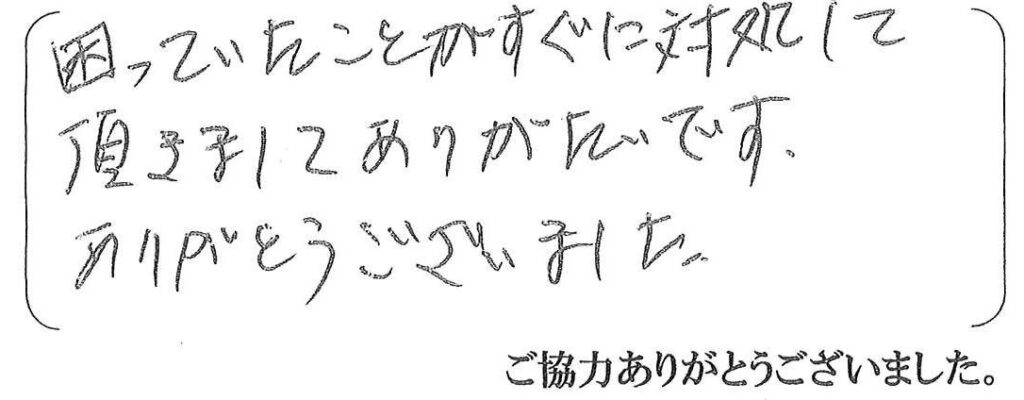 困っていたことがすぐに対処して
頂きましてありがたいです、
ありがとうございました。
ご協力ありがとうございました。